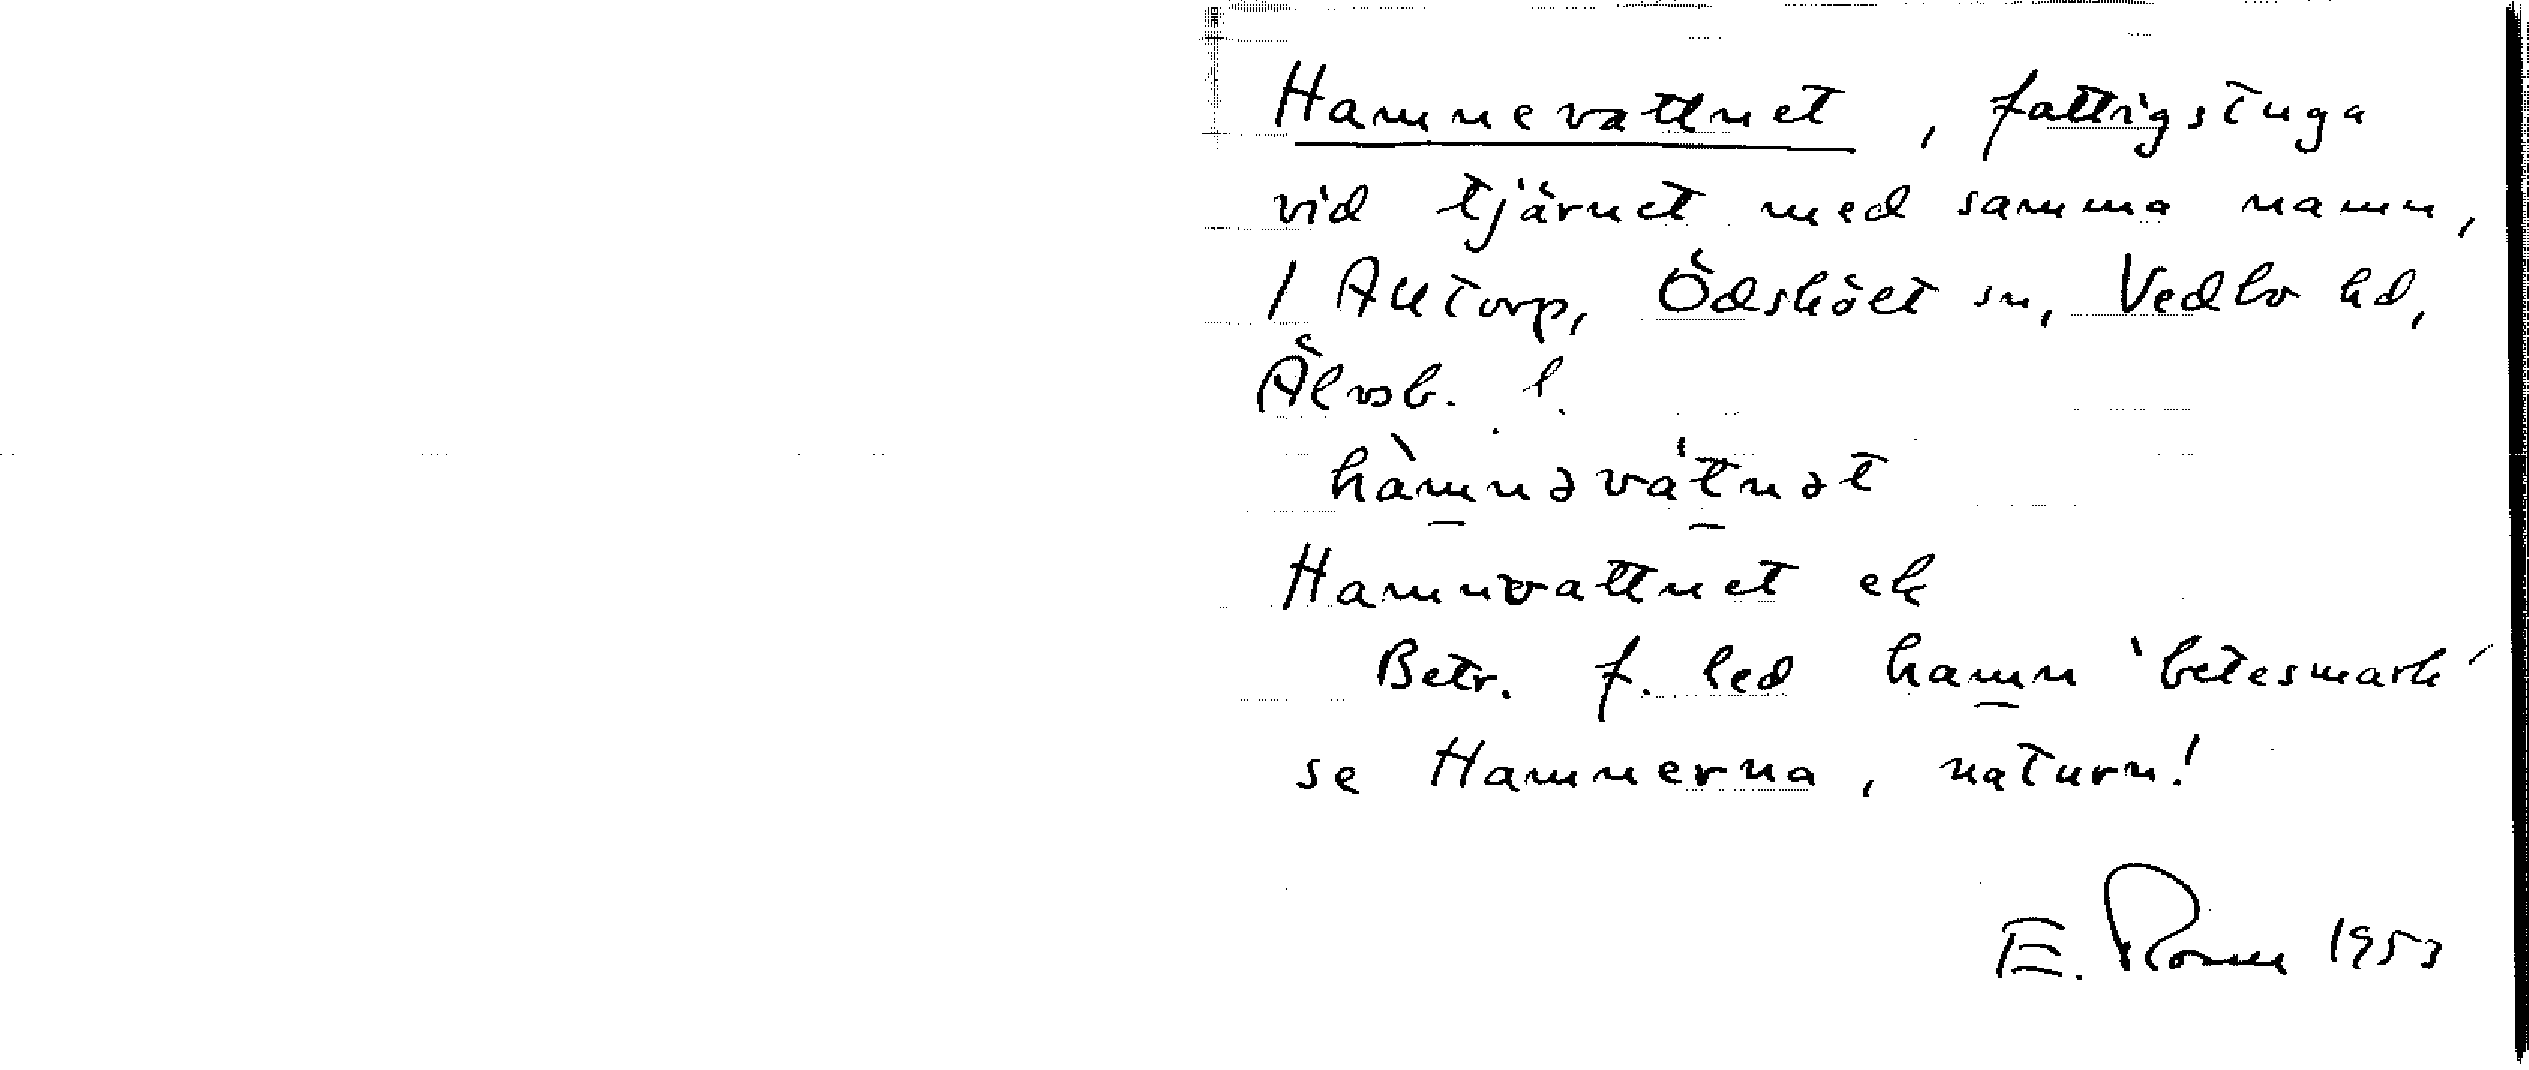 Hamnevattnet, fattigstuga
vid tjärnet med samma namn,
1 Alltorp, Ödskölt sn, Vedbo hd,
Älvsb. l.
hàmnəvátnət
Hamnvattnet ek
Betr. f. led hamn 'betesmark'
se Hamnerna, naturn!
E. 1953